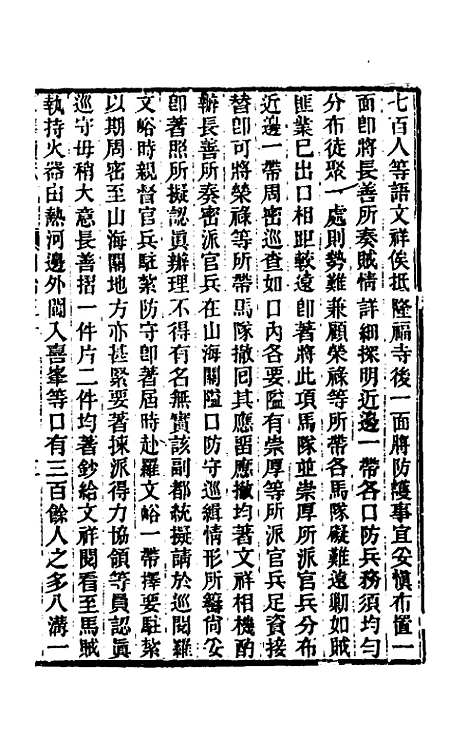 七百人等語文祥俟抵隆福寺後一面將防護事宜妥慎布置一
面卽將長善所奏賊情詳細探明近邊一帶各口防兵務須均勻
分布徒聚一處則勢難兼顧榮祿等所帶各馬隊礙難遠勦如賊
匪業已出口相距較遠卽著將此項馬隊並崇厚所派官兵分布
近邊一帶周密巡查如口內各要隘有崇厚等所派官兵足資接
替卽可將榮祿等所帶馬隊撤回其應留應撤均著文祥相機酌
辦長善所奏密派官兵在山海關隘口防守巡緝情形所籌尚妥
卽著照所擬認眞辦理不得有名無實該副都統擬請於巡閱羅
文峪時親督官兵駐紮防守卽著屆時赴羅文峪一帶擇要駐紮
以期周密至山海關地方亦甚緊要著揀派得力協領等員認眞
巡守毋稍大意長善摺一件片二件均著鈔給文祥閱看至馬賊
執持火器由熱河邊外闖入喜峯等口有三百餘人之多八溝一